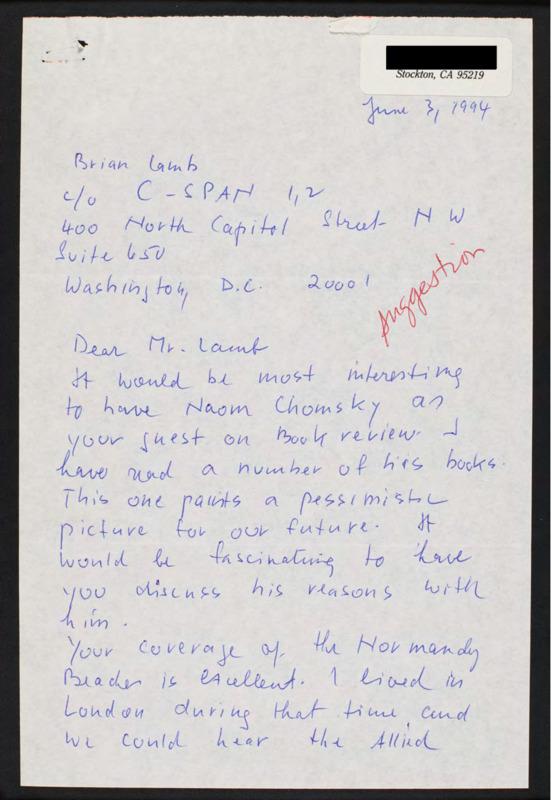 Stockton, CA 95219
June 3, 1994
Brian Lamb
c/o C-SPAN 1,2
400 North Capitol Street NW
Suite 650
Washington, D.C. 20001
suggestion
Dear Mr. Lamb
It would be most interesting
to have Naom Chomsky as
your guest on Book review. I
have read a number of his books.
This one paints a pessimistic
picture for our future. It
would be fascinating to have
you discuss his reasons with
him.
Your coverage of the Normandy
Beaches is excellent. I lived in
London during that time, and
we could hear the Allied